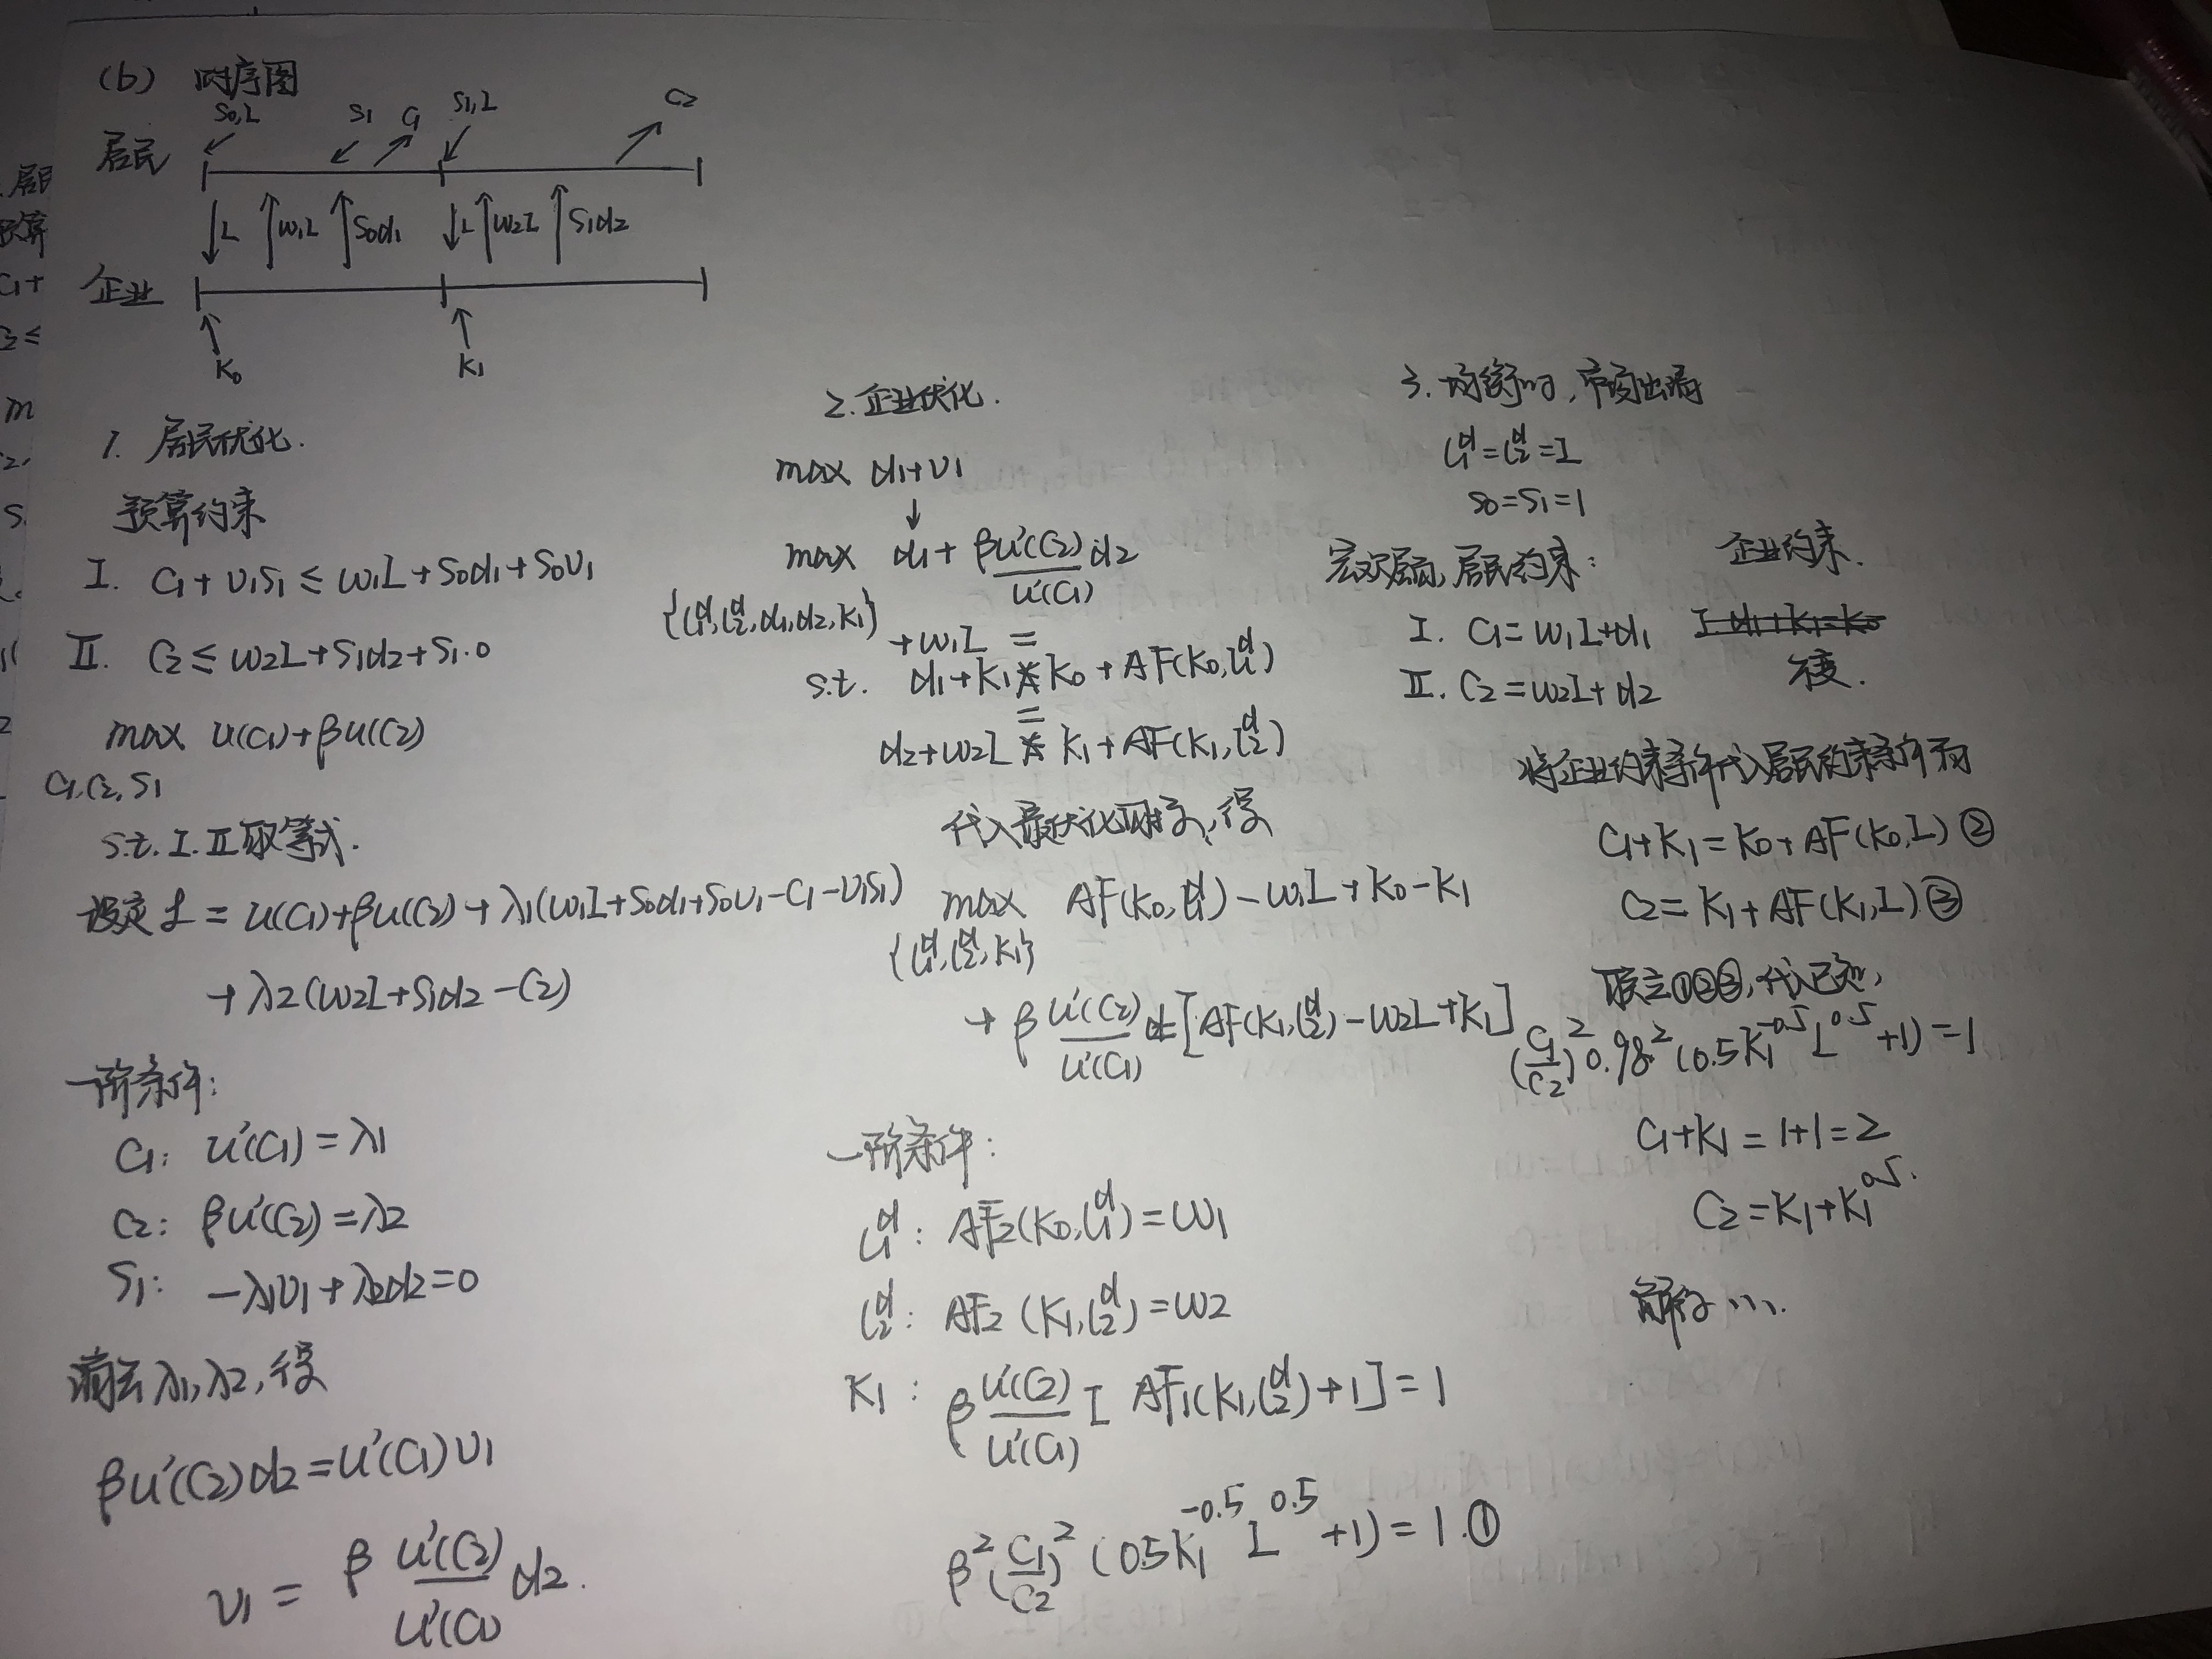 (b) 时序图
S₀,L S₁ C₁ S₁,L C₂
居民
L w₁L S₀d₁ L w₂L S₁d₂
企业
K₀ K₁
1. 居民优化.
预算约束
I. C₁+v₁S₁ ≤ w₁L+S₀d₁+S₀v₁
II. C₂ ≤ w₂L+S₁d₂+S₁·0
max u(C₁)+βu(C₂)
C₁,C₂,S₁
s.t. I. II取等式.
设定 ℒ = u(C₁)+βu(C₂)+λ₁(w₁L+S₀d₁+S₀v₁-C₁-v₁S₁)
+λ₂(w₂L+S₁d₂-C₂)
一阶条件:
C₁: u'(C₁)=λ₁
C₂: βu'(C₂)=λ₂
S₁: -λ₁v₁+λ₂d₂=0
消去λ₁,λ₂,得
βu'(C₂)d₂=u'(C₁)v₁
v₁ = β u'(C₂)/u'(C₁) d₂.
2. 企业优化.
max d₁+v₁
↓
max d₁+ βu'(C₂)/u'(C₁) d₂
{l₁ᵈ,l₂ᵈ,d₁,d₂,K₁}
s.t. d₁+K₁+w₁L = K₀+AF(K₀,l₁ᵈ)
d₂+w₂L = K₁+AF(K₁,l₂ᵈ)
代入最优化,得
max AF(K₀,l₁ᵈ)-w₁L+K₀-K₁
{l₁ᵈ,l₂ᵈ,K₁}
+β u'(C₂)/u'(C₁) [AF(K₁,l₂ᵈ)-w₂L+K₁]
一阶条件:
l₁ᵈ: AF₂(K₀,l₁ᵈ)=w₁
l₂ᵈ: AF₂(K₁,l₂ᵈ)=w₂
K₁: β u'(C₂)/u'(C₁) [AF₁(K₁,l₂ᵈ)+1]=1
β²(C₁/C₂)²(0.5K₁^-0.5 L^0.5+1)=1.①
3. 均衡时,市场出清
l₁ᵈ=l₂ᵈ=L
S₀=S₁=1
宏观层面,居民约束: 企业约束.
I. C₁=w₁L+d₁ I. d₁+K₁=K₀
II. C₂=w₂L+d₂ 不变.
将企业约束条件代入居民约束条件有
C₁+K₁=K₀+AF(K₀,L) ②
C₂=K₁+AF(K₁,L).③
联立①②③,代入已知,
(C₁/C₂)² 0.98²(0.5K₁^-0.5 L^0.5+1)=1
C₁+K₁=1+1=2
C₂=K₁+K₁^0.5.
解得…